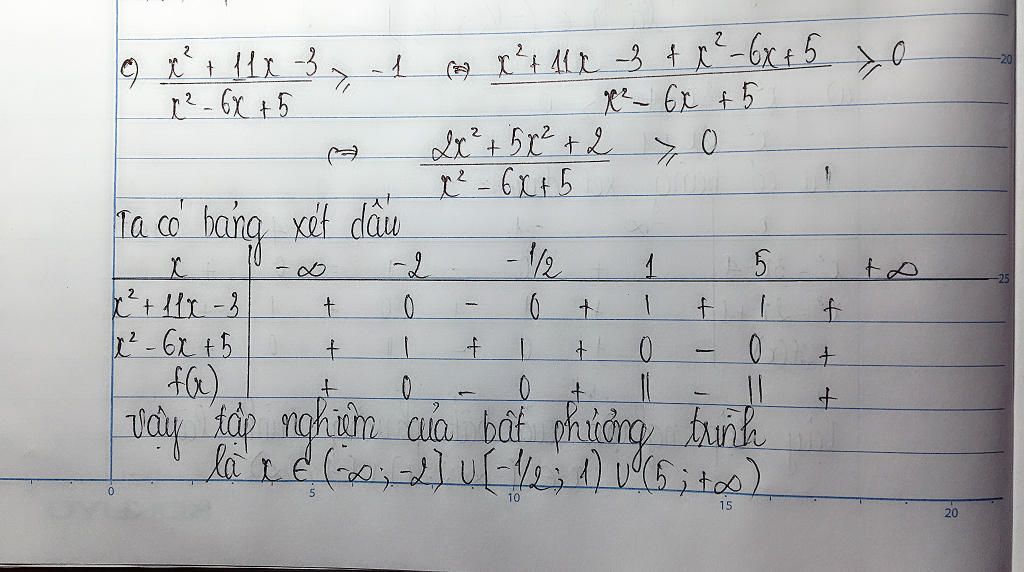 c) (x² + 11x - 3)/(x² - 6x + 5) ⩾ -1 ⇔ (x² + 11x - 3 + x² - 6x + 5)/(x² - 6x + 5) ⩾ 0
⇔ (2x² + 5x² + 2)/(x² - 6x + 5) ⩾ 0
Ta có bảng xét dấu
x | -∞ -2 -1/2 1 5 +∞
x² + 11x - 3 | + 0 - 0 + | + | +
x² - 6x + 5 | + | + | + 0 - 0 +
f(x) | + 0 - 0 + || - || +
Vậy tập nghiệm của bất phương trình
là x ∈ (-∞; -2] ∪ [-1/2; 1) ∪ (5; +∞)
0 5 10 15 20
20
25